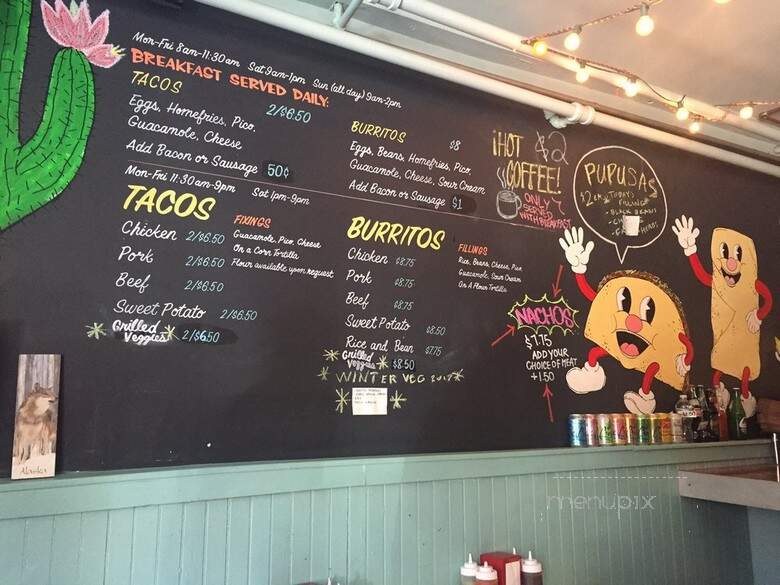 Mon-Fri 8am-11:30am Sat 9am-1pm Sun (all day) 9am-2pm
BREAKFAST SERVED DAILY:
TACOS
2/$6.50
Eggs, Homefries, Pico,
Guacamole, Cheese
Add Bacon or Sausage 50¢
BURRITOS $8
Eggs, Beans, Homefries, Pico,
Guacamole, Cheese, Sour Cream
Add Bacon or Sausage $1
Mon-Fri 11:30am-9pm Sat 1pm-9pm
TACOS
Chicken 2/$6.50
Pork 2/$6.50
Beef 2/$6.50
Sweet Potato 2/$6.50
Grilled
Veggies 2/$6.50
FIXINGS
Guacamole, Pico, Cheese
On a Corn Tortilla
Flour available upon request
BURRITOS
Chicken $8.75
Pork $8.75
Beef $8.75
Sweet Potato $8.50
Rice and Bean $7.75
Grilled
Veggies $8.50
WINTER VEG
FILLINGS
Rice, Beans, Cheese, Pico
Guacamole, Sour Cream
On A Flour Tortilla
¡HOT $2
COFFEE!
ONLY
SERVED
WITH BREAKFAST
PUPUSAS
$2 ea. TODAY'S
FILLINGS
- BLACK BEAN
NACHOS
$7.75
ADD YOUR
CHOICE OF MEAT
+1.50
Alaska
menupix